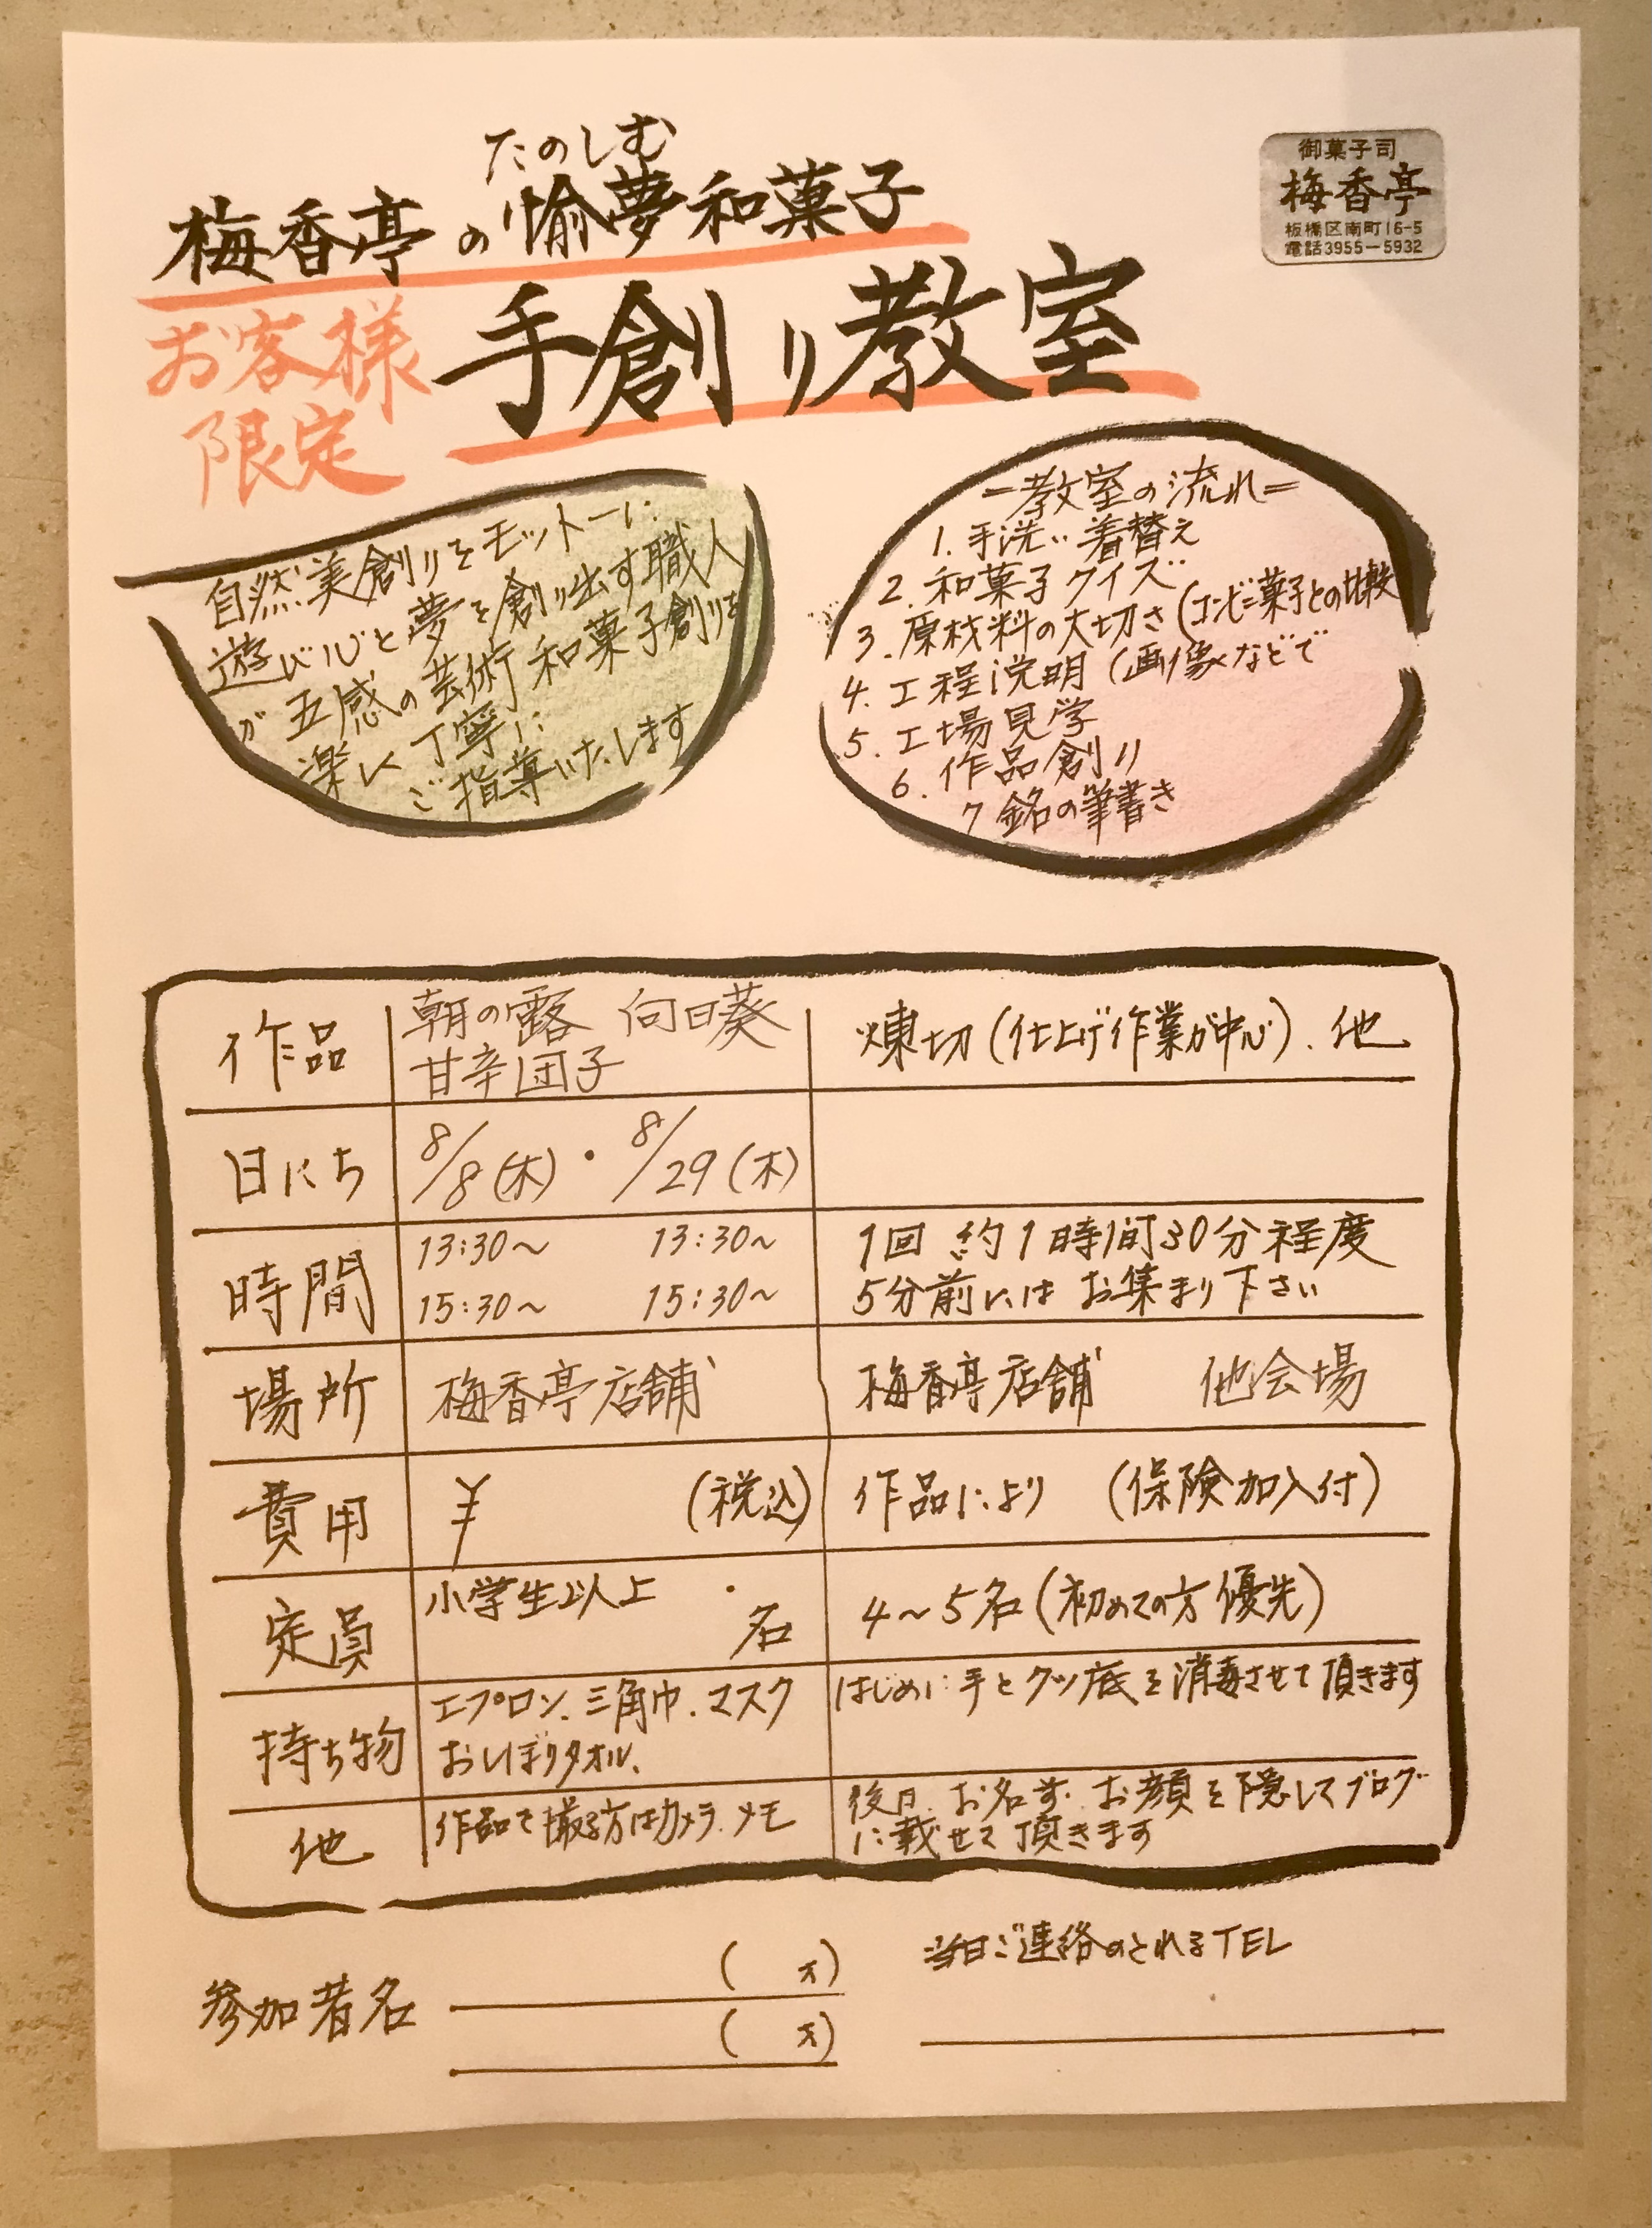 たのしむ
梅香亭の愉夢和菓子
御菓子司
梅香亭
板橋区南町16-5
電話3955-5932
お客様
限定
手創り教室
自然美創りをモットーに
遊び心と夢を創り出す職人
が五感の芸術和菓子創りを
楽しく丁寧に
ご指導いたします
=教室の流れ=
1.手洗い着替え
2.和菓子クイズ
3.原材料の大切さ(コンビニ菓子との比較
4.工程説明(画像などで
5.工場見学
6.作品創り
7 銘の筆書き
作品 朝の露 向日葵 煉切(仕上げ作業が中心)、他
甘辛団子
日にち 8/8(木)・8/29(木)
時間 13:30~ 13:30~ 1回 約1時間30分程度
15:30~ 15:30~ 5分前にはお集まり下さい
場所 梅香亭店舗 梅香亭店舗 他会場
費用 ¥ (税込) 作品により (保険加入付)
定員 小学生以上 名 4~5名(初めての方優先)
持ち物 エプロン、三角巾、マスク はじめに手とクツ底を消毒させて頂きます
おしぼりタオル、
他 作品を撮る方はカメラ、メモ 後日、お名前、お顔を隠してブログ
に載せて頂きます
参加者名 ( 才)
( 才)
当日ご連絡のとれるTEL